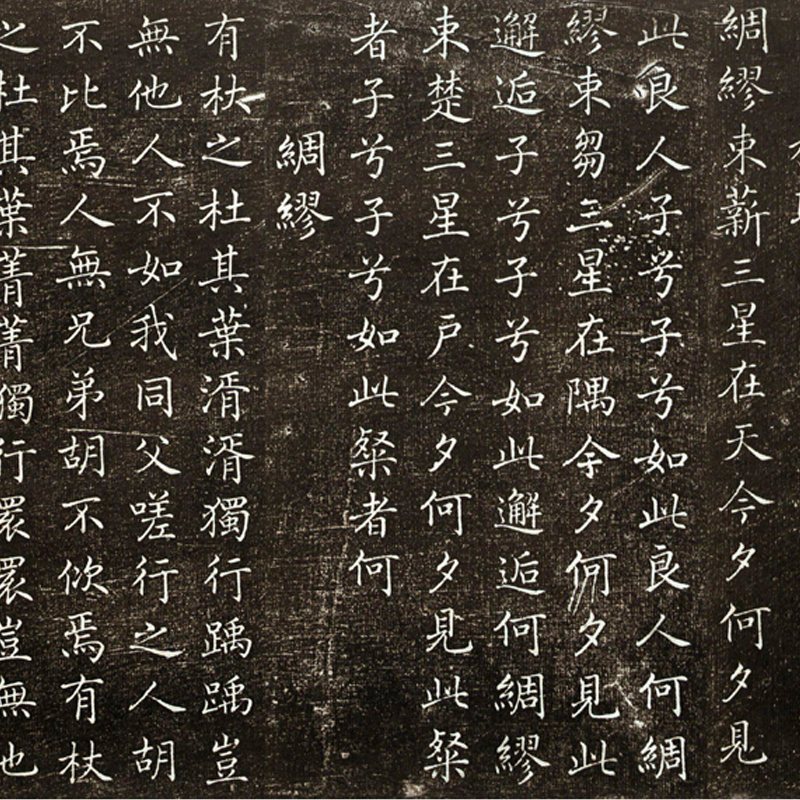 綢繆束薪三星在天今夕何夕見
此良人子兮子兮如此良人何綢
繆束芻三星在隅今夕何夕見此
邂逅子兮子兮如此邂逅何綢繆
束楚三星在戶今夕何夕見此粲
者子兮子兮如此粲者何
綢繆
有杕之杜其葉湑湑獨行踽踽豈
無他人不如我同父嗟行之人胡
不比焉人無兄弟胡不佽焉有杕
之杜其葉菁菁獨行豈無也